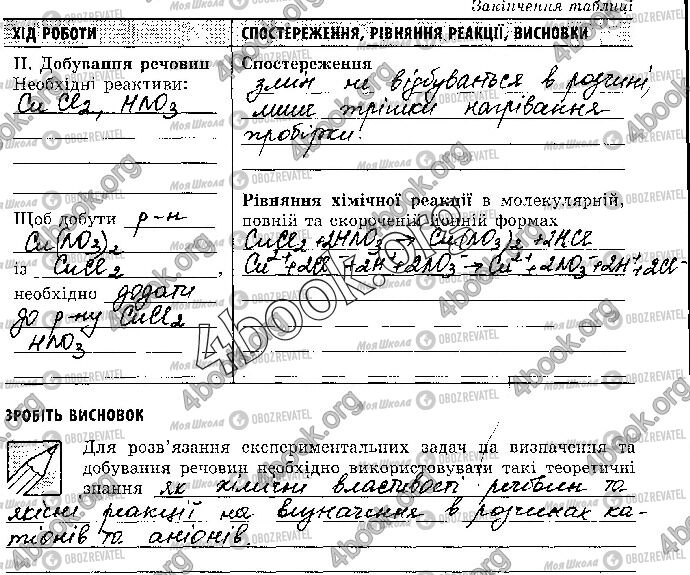 Закінчення таблиці
ХІД РОБОТИ
СПОСТЕРЕЖЕННЯ, РІВНЯННЯ РЕАКЦІЇ, ВИСНОВКИ
II. Добування речовин
Необхідні реактиви:
CuCl2, HNO3
Щоб добути р-н
Cu(NO3)2
із CuCl2,
необхідно додати
до р-ну CuCl2
HNO3
Спостереження
змін не відбувається в розчині,
лише трішки нагрівання
пробірки.
Рівняння хімічної реакції в молекулярній,
повній та скороченій йонній формах
CuCl2 + 2HNO3 → Cu(NO3)2 + 2HCl
Cu2+ + 2Cl- + 2H+ + 2NO3- → Cu2+ + 2NO3- + 2H+ + 2Cl-
ЗРОБІТЬ ВИСНОВОК
Для розв'язання експериментальних задач на визначення та
добування речовин необхідно використовувати такі теоретичні
знання як хімічні властивості речовин та
якісні реакції на визначення в розчинах ка-
тіонів та аніонів.
4book.org
Моя Школа OBOZREVATEL